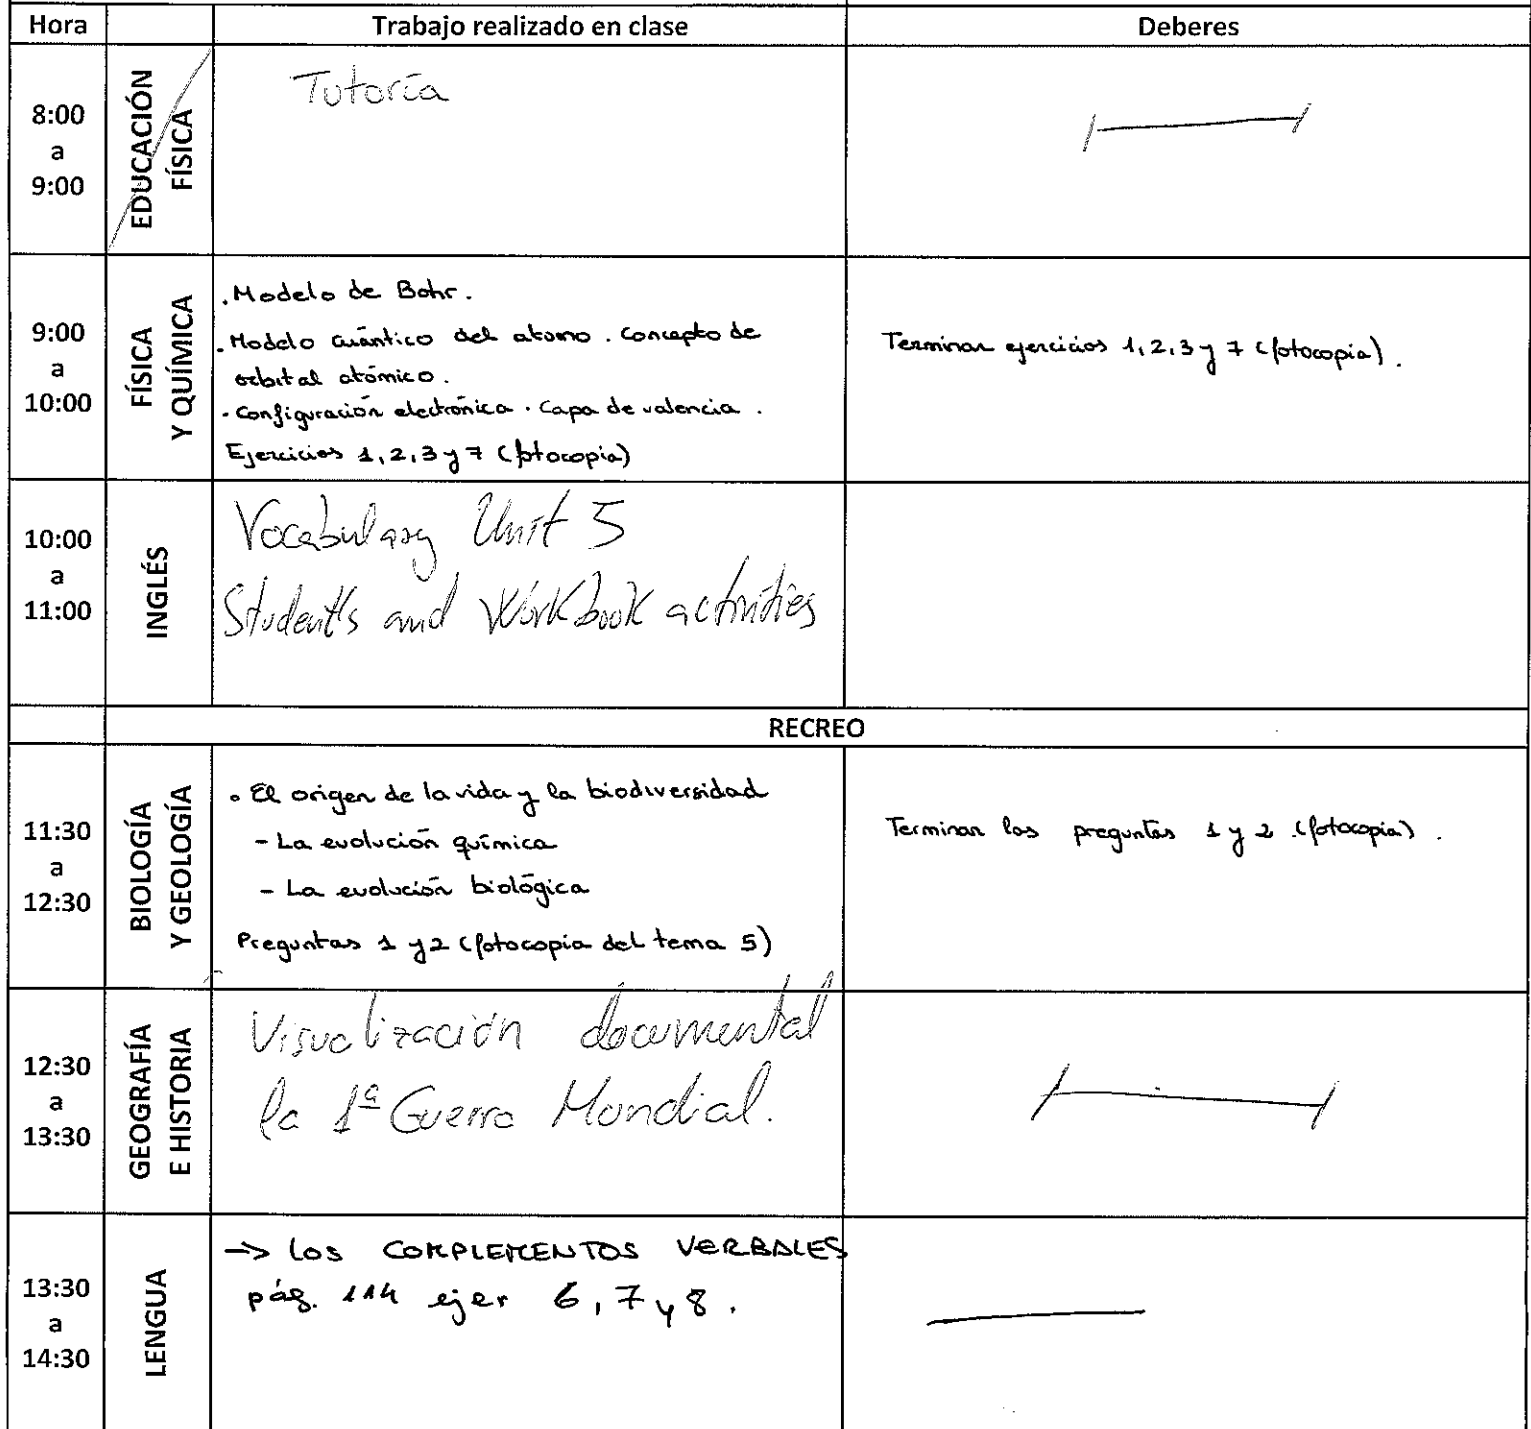 Hora Trabajo realizado en clase Deberes
8:00
a
9:00
EDUCACIÓN
FÍSICA
Tutoría
9:00
a
10:00
FÍSICA
Y QUÍMICA
. Modelo de Bohr.
. Modelo cuántico del atomo. Concepto de
orbital atómico.
. Configuración electrónica. Capa de valencia.
Ejercicios 1, 2, 3 y 7 (fotocopia)
Terminar ejercicios 1, 2, 3 y 7 (fotocopia).
10:00
a
11:00
INGLÉS
Vocabulary Unit 5
Student's and Workbook activities
RECREO
11:30
a
12:30
BIOLOGÍA
Y GEOLOGÍA
. El origen de la vida y la biodiversidad
- La evolución química
- La evolución biológica
Preguntas 1 y 2 (fotocopia del tema 5)
Terminar las preguntas 1 y 2 (fotocopia).
12:30
a
13:30
GEOGRAFÍA
E HISTORIA
Visualización documental
la 1ª Guerra Mundial.
13:30
a
14:30
LENGUA
→ LOS COMPLEMENTOS VERBALES
pág. 114 ejer 6, 7 y 8.